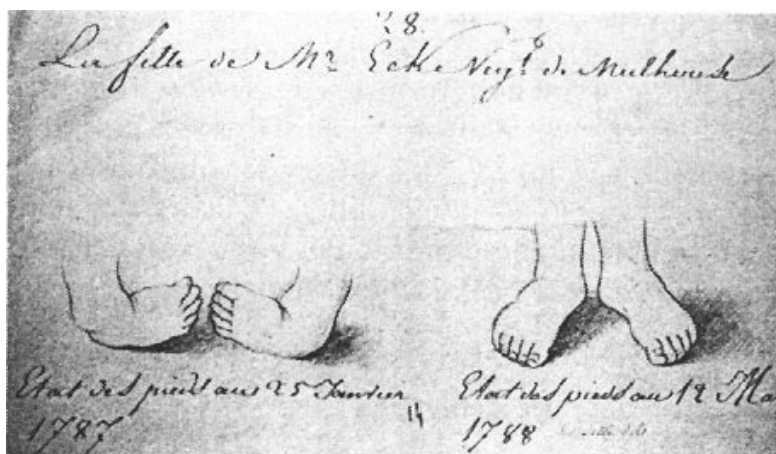 28.
La fille de Mr Eck Negt de Mulhouse
Etat des pieds au 25 Janvier
1787
14
Etat des pieds au 12 Ma
1788